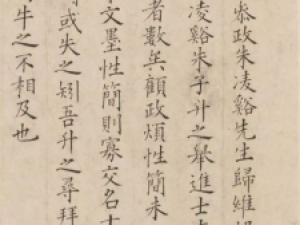 恭政朱凌谿先生歸維揚
凌谿朱子升之舉進士
者數矣顧政煩性簡未
文墨性簡則寡交名士
或失之矧吾升之尋拜
牛之不相及也